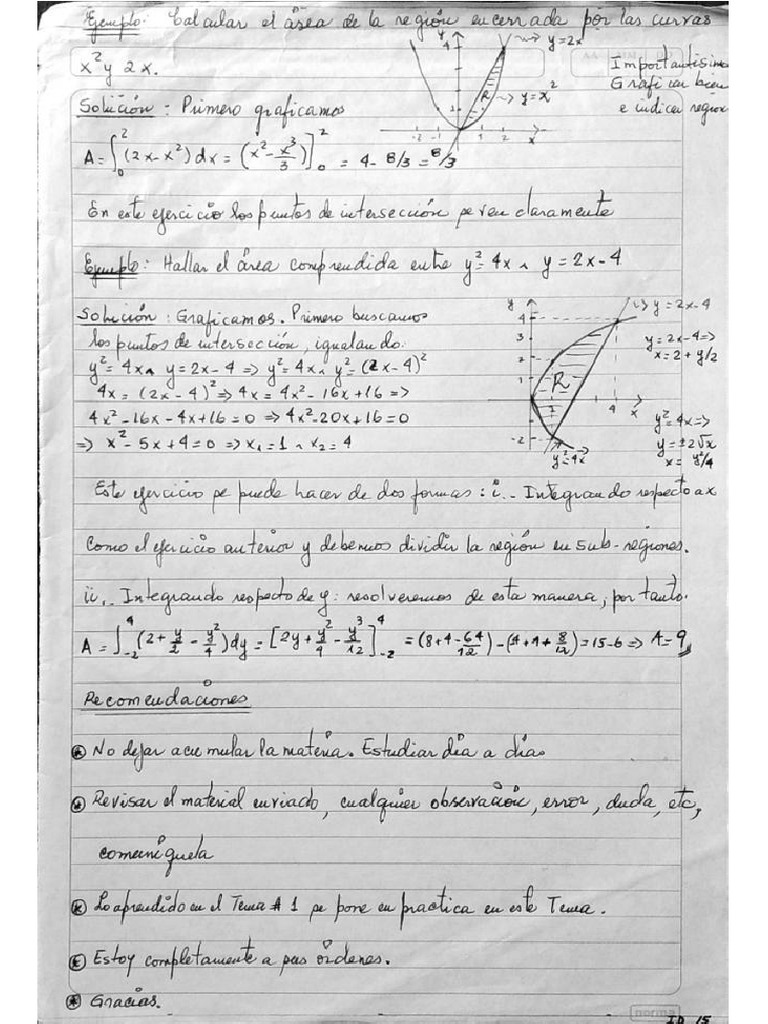 Ejemplo: Calcular el área de la región encerrada por las curvas
x² y 2x.
y
4
y=2x
y=x²
R
1
-2 -1 1 2 x
Importantísimo
Graficar bien
e indicar region
Solución: Primero graficamos
A=∫₀²(2x-x²)dx=(x²-x³/3)]₀² = 4-8/3=8/3
En este ejercicio los puntos de intersección se ven claramente
Ejemplo: Hallar el área comprendida entre y²=4x ∧ y=2x-4
Solución: Graficamos. Primero buscamos
los puntos de intersección, igualando:
y²=4x ∧ y=2x-4 => y²=4x ∧ y²=(2x-4)²
4x=(2x-4)² => 4x=4x²-16x+16 =>
4x²-16x-4x+16=0 => 4x²-20x+16=0
=> x²-5x+4=0 => x₁=1 ∧ x₂=4
y
4
3
2
1
-2
R
1 4 x
y=2x-4
y=2x-4=>
x=2+y/2
y²=4x=>
y=±2√x
x=y²/4
y²=4x
Este ejercicio se puede hacer de dos formas: i.- Integrando respecto a x
como el ejercicio anterior y debemos dividir la región en sub-regiones.
ii.- Integrando respecto de y: resolveremos de esta manera, por tanto.
A=∫₋₂⁴(2+y/2-y²/4)dy=[2y+y²/4-y³/12]₋₂⁴=(8+4-64/12)-(-4+1+8/12)=15-6=> A=9
Recomendaciones
* No dejar acumular la materia. Estudiar día a día.
* Revisar el material enviado, cualquier observación, error, duda, etc,
comuníquela
* Lo aprendido en el Tema #1 se pone en practica en este Tema.
* Estoy completamente a sus órdenes.
* Gracias.
norma
ID 15